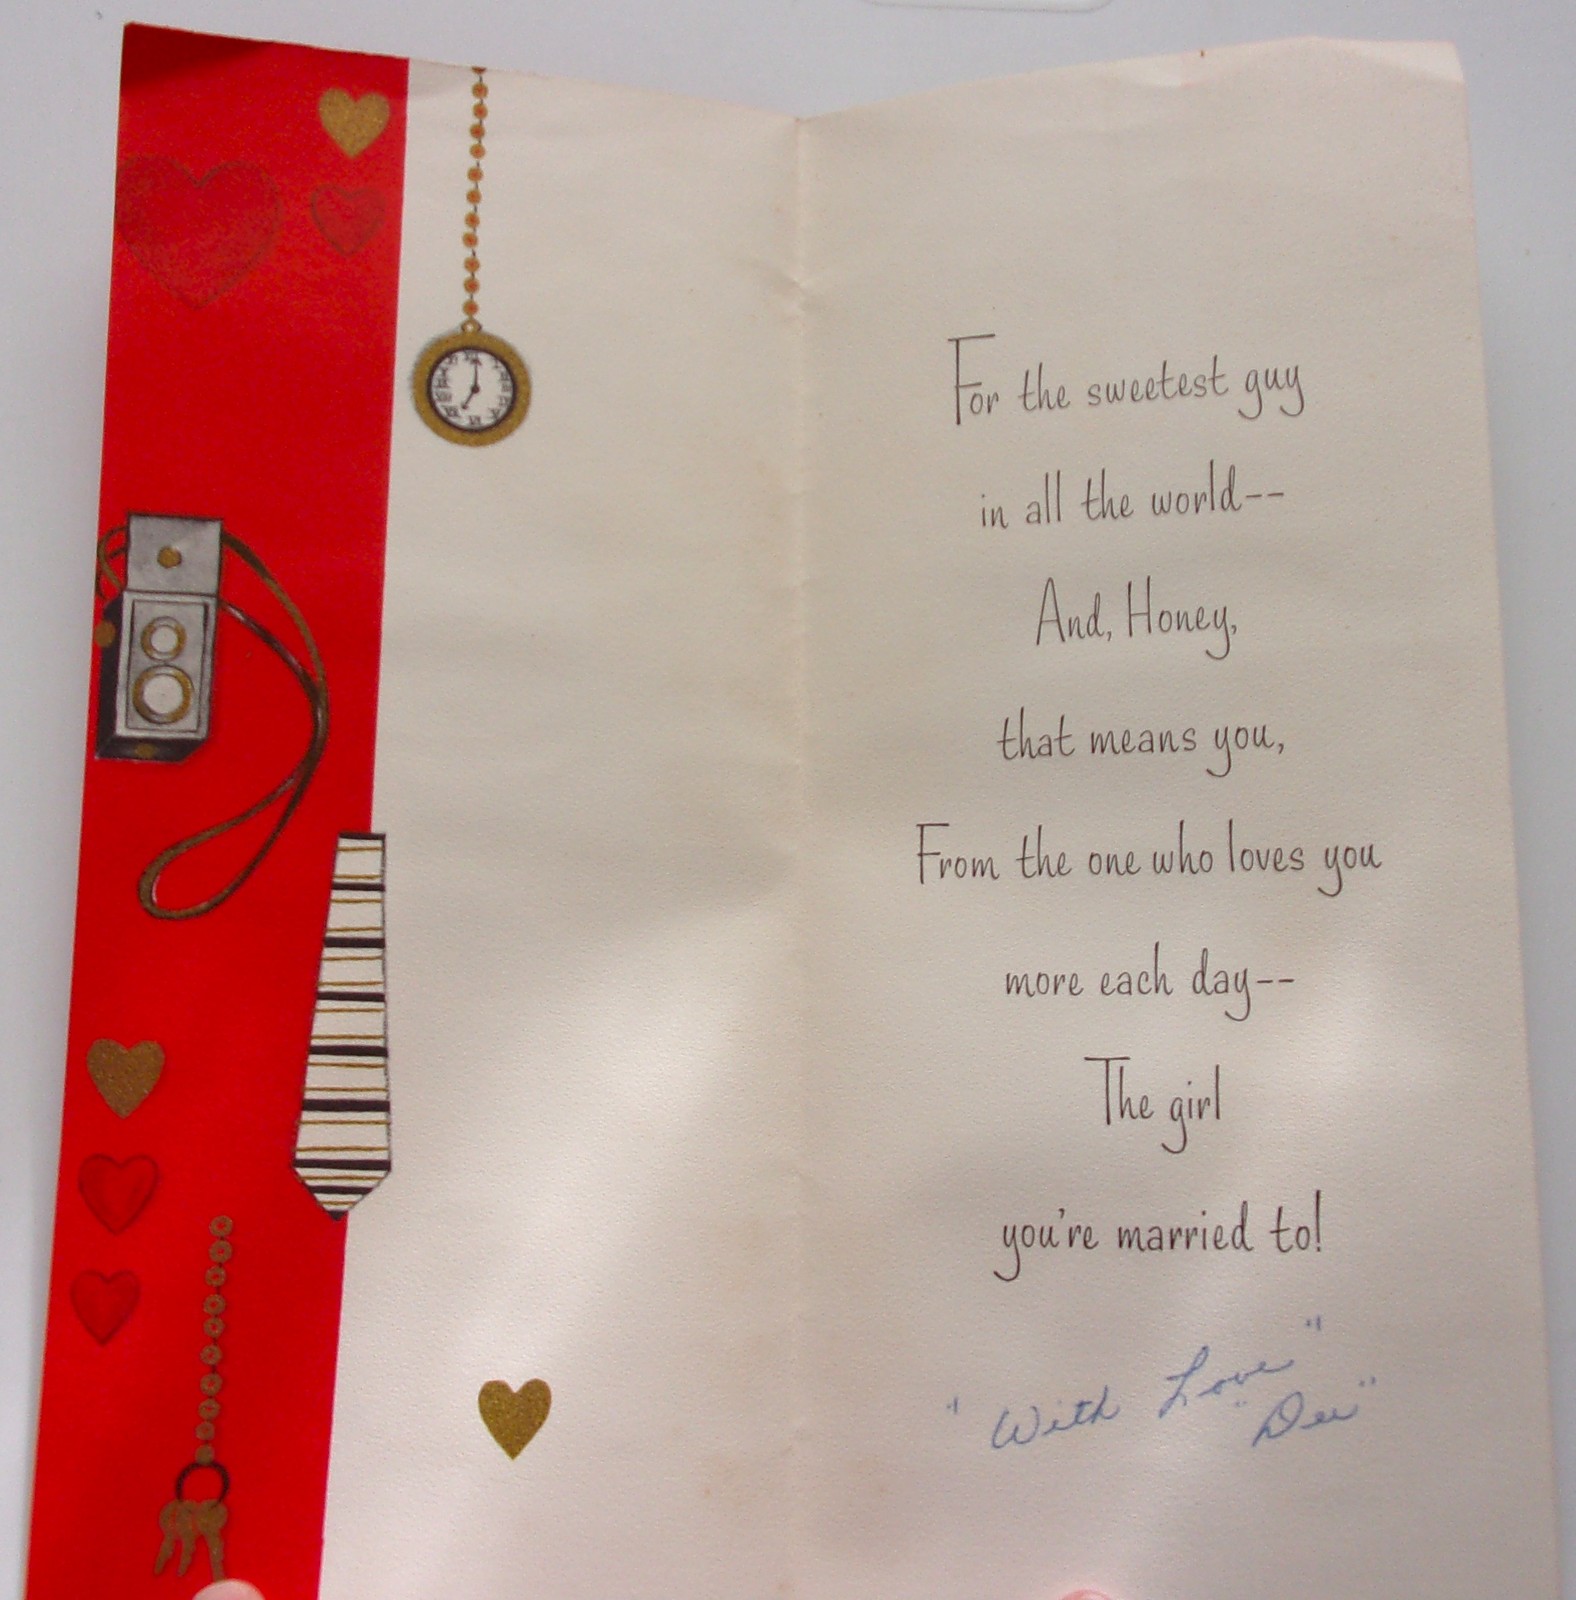 For the sweetest guy
in all the world--
And, Honey,
that means you,
From the one who loves you
more each day--
The girl
you're married to!
"With Love"
"Dee"